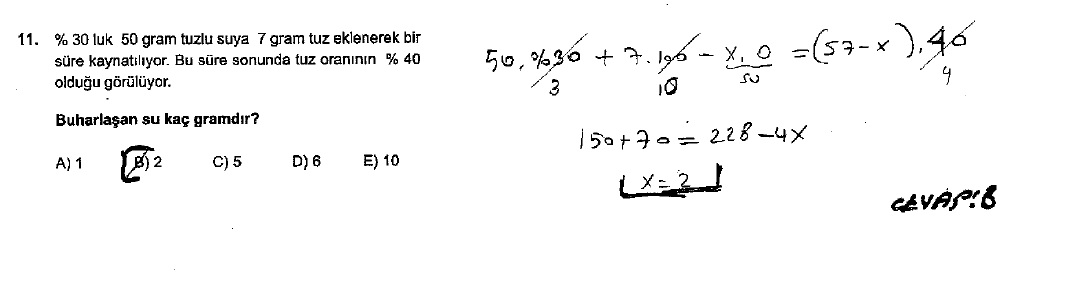 11. % 30 luk 50 gram tuzlu suya 7 gram tuz eklenerek bir
süre kaynatılıyor. Bu süre sonunda tuz oranının % 40
olduğu görülüyor.
Buharlaşan su kaç gramdır?
A) 1 B) 2 C) 5 D) 6 E) 10
50 . %30 + 7 . 100 - x . 0 = (57 - x) . 40
3 10 su 4
150 + 70 = 228 - 4x
x = 2
CEVAP:B